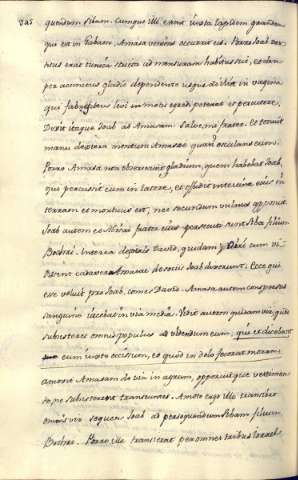 245
quendum Sibam. Cumque illi erant iuxta Lapidem grandem,
qui est in Gabaon, Amasa veniens occurrit eis. Porro Joab ves-
titus erat tunica stricta ad mensuram habitus sui, et desu-
per accinctus gladio dependente usque ad ilia in vagina
qui fabricatus levi motu egredi poterat, et percutere.
Dixit itaque Joab ad Amasam Salve, mi frater. Et tenuit
manu dextera mentum Amasae quasi osculans eum.
Porro Amasa non observavit gladium, quem habebat Joab,
qui percussit eum in latere, et effudit intestina eius in
terram et mortuus est, nec secundum vulnus apposuit
Joab autem et Abisai frater eius persecuti sunt Siba filium
Bochri. Interea quidam viri cum
de sociis Joab dixerunt: Ecce qui
esse voluit pro Joab, comes David. Amasa autem conspersus
sanguine iacebat in via media. Vidit autem quidam vir, quod
subsisteret omnis populus ad videndum eum,
eum
amovit Amasam de via in agrum, operuitque vestimen-
to, ne subsisterent transeuntes. Amoto ergo illo transibat
omnis vir sequens Joab ad persequendum Sibam filium
Bochri. Porro ille transierat per omnes tribus Israel